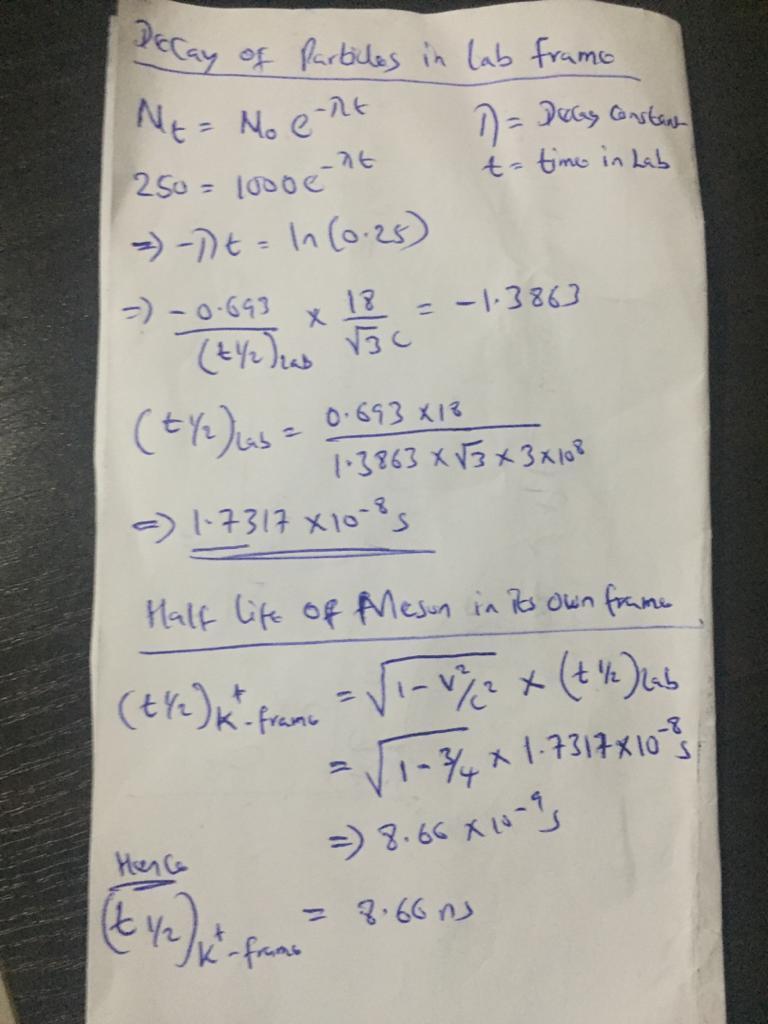 Decay of Particles in Lab frame
Nt = No e^-λt    λ = Decay Constant
250 = 1000e^-λt    t = time in Lab
=> -λt = ln(0.25)
=> -0.693/(t1/2)Lab × 18/√3c = -1.3863
(t1/2)Lab = 0.693 ×18 / 1.3863 × √3 × 3×10^8
=> 1.7317 ×10^-8 s
Half Life of Meson in its own frame
(t1/2)K+-frame = √(1 - v²/c²) × (t1/2)Lab
= √(1 - 3/4) × 1.7317×10^-8 s
=> 8.66 ×10^-9 s
Hence
(t1/2)K+-frame = 8.66 ns